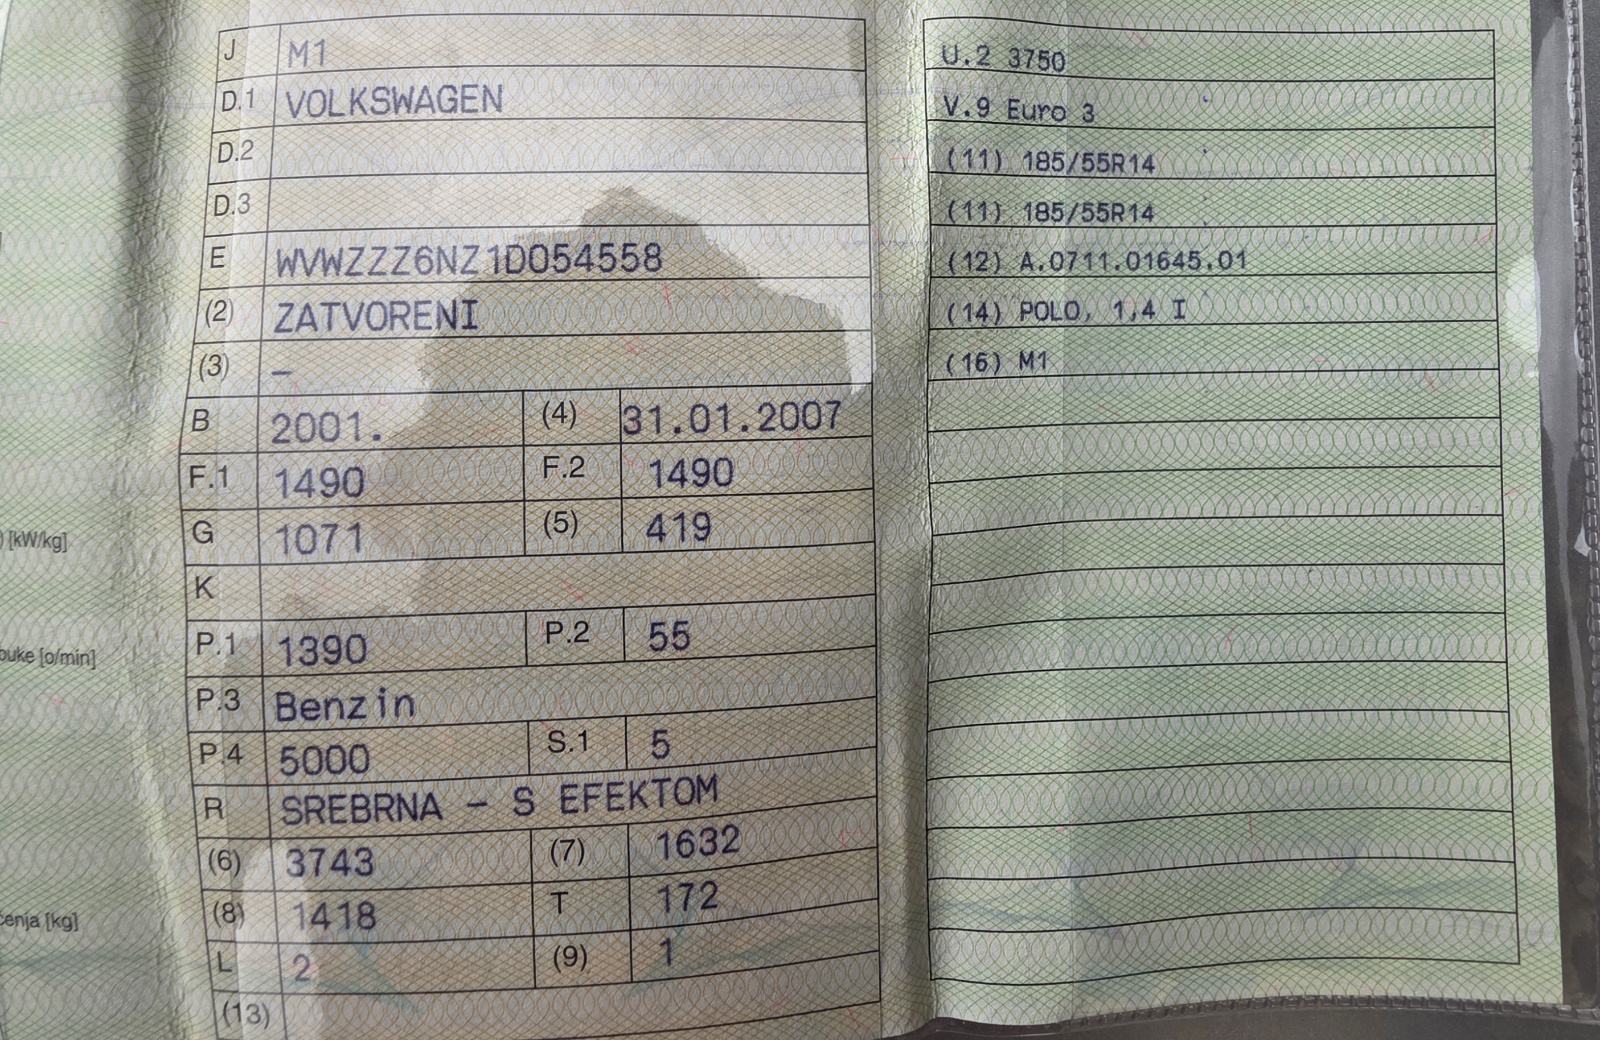 J M1
D.1 VOLKSWAGEN
D.2
D.3
E WVWZZZ6NZ1D054558
(2) ZATVORENI
(3) –
B 2001. (4) 31.01.2007
F.1 1490 F.2 1490
G 1071 (5) 419
K
P.1 1390 P.2 55
P.3 Benzin
P.4 5000 S.1 5
R SREBRNA – S EFEKTOM
(6) 3743 (7) 1632
(8) 1418 T 172
L 2 (9) 1
(13)
U.2 3750
V.9 Euro 3
(11) 185/55R14
(11) 185/55R14
(12) A.0711.01645.01
(14) POLO, 1,4 I
(16) M1
) [kW/kg]
buke [o/min]
čenja [kg]